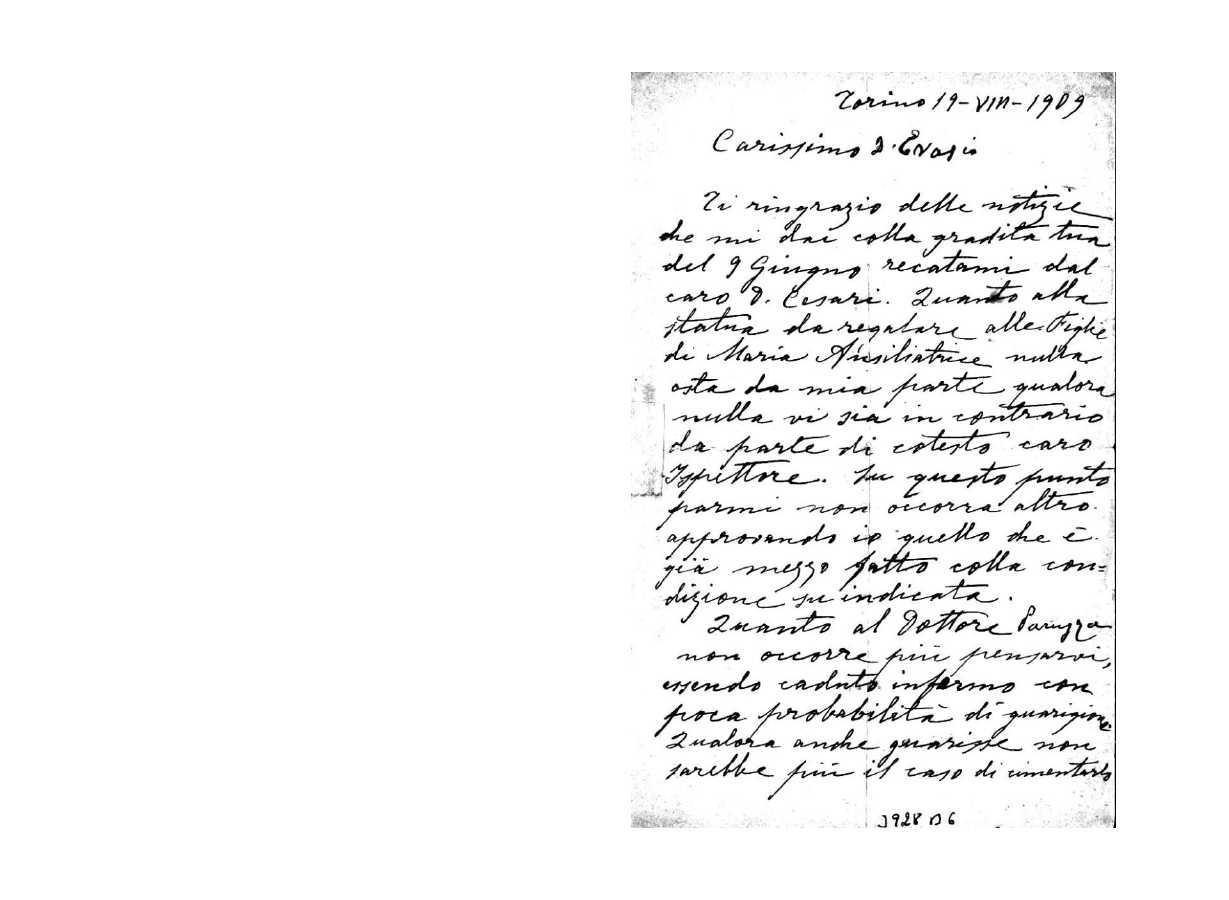 Torino 19-VIII-1909
Carissimo D. Evasio
Ti ringrazio delle notizie
che mi dai colla gradita tua
del 9 Giugno recatami dal
caro D. Cesari. Quanto alla
statua da regalare alle Figlie
di Maria Ausiliatrice nulla
osta da mia parte qualora
nulla vi sia in contrario
da parte di cotesto caro
Ispettore. Su questo punto
parmi non occorra altro
approvando io quello che è
già mezzo fatto colla con=
dizione su indicata.
Quanto al Dottore
non occorre più pensarvi,
essendo caduto infermo con
poca probabilità di guarigione
Qualora anche guarisse non
sarebbe più il caso di cimentarlo
3928 B6